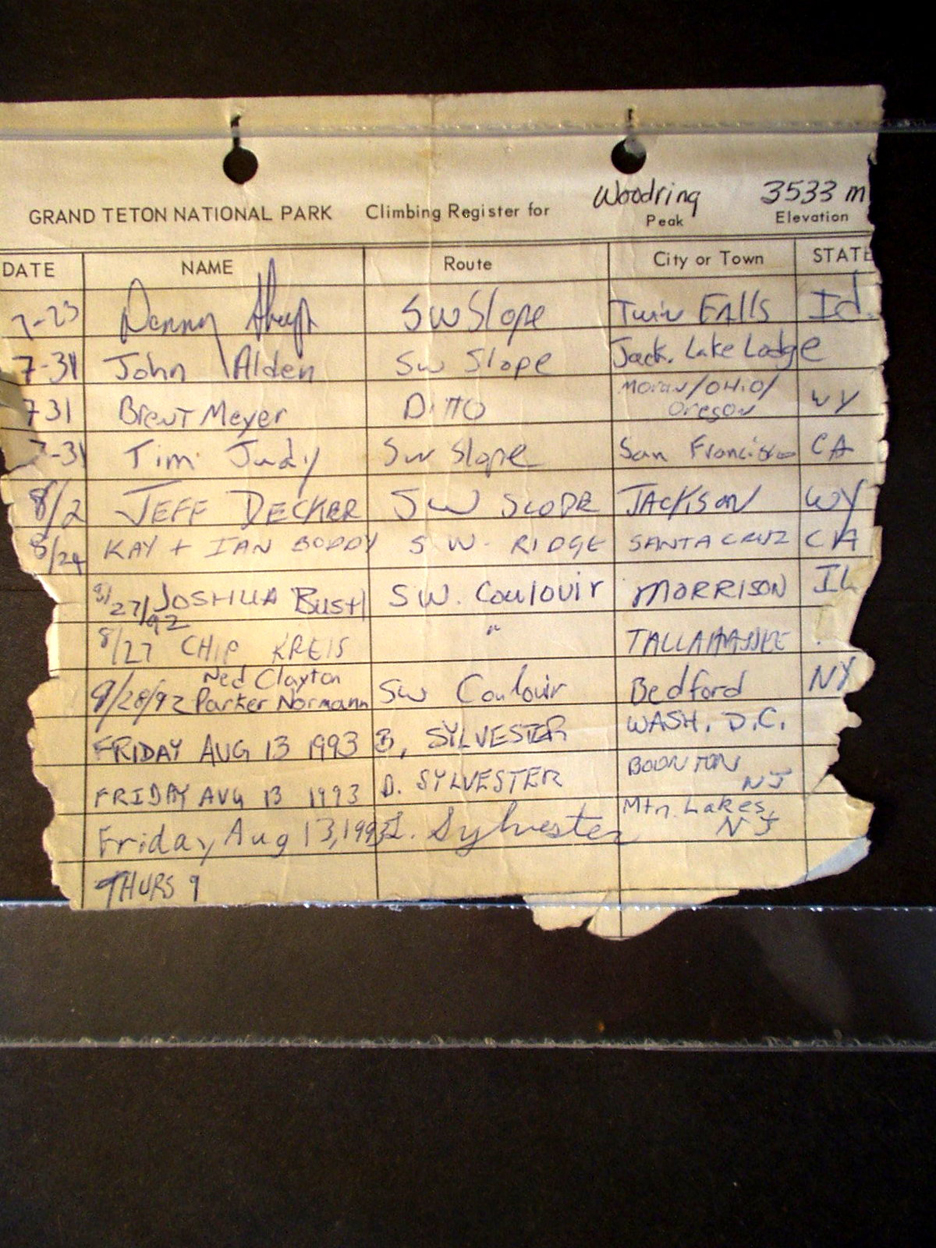 Woodring 3533 m
GRAND TETON NATIONAL PARK Climbing Register for Peak Elevation
DATE NAME Route City or Town STATE
7-23 Danny SW Slope Twin Falls Id.
7-31 John Alden SW Slope Jack. Lake Lodge
7 31 Brent Meyer Ditto Moran/OHIO/ Oregon WY
7-31 Tim Judy SW Slope San Francisco CA
8/2 JEFF DECKER SW SLOPE JACKSON WY
8/24 KAY + IAN BODDY S.W. RIDGE SANTA CRUZ CA
8/27/92 JOSHUA Bush SW. Coulouir MORRISON IL
8/27 CHIP KREIS " TALLAHASSEE
Ned Clayton
9/20/92 Parker Normann SW Coulouir Bedford NY
FRIDAY AUG 13 1993 B. SYLVESTER WASH. D.C.
FRIDAY AUG 13 1993 D. SYLVESTER BOONTON NJ
Friday Aug 13, 1993 L. Sylvester Mtn. Lakes, NJ
THURS 9